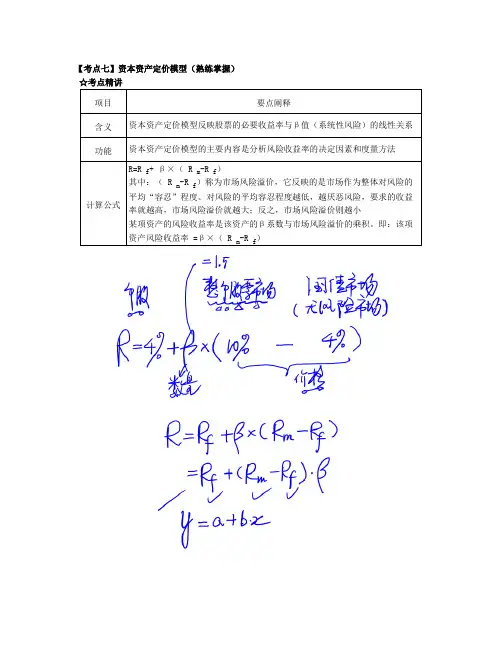 【考点七】资本资产定价模型（熟练掌握）
☆考点精讲
项目 要点阐释
含义 资本资产定价模型反映股票的必要收益率与β值（系统性风险）的线性关系
功能 资本资产定价模型的主要内容是分析风险收益率的决定因素和度量方法
计算公式
R=R f+ β×（ R m-R f）
其中：（ R m-R f）称为市场风险溢价，它反映的是市场作为整体对风险的
平均“容忍”程度。对风险的平均容忍程度越低，越厌恶风险，要求的收益
率就越高，市场风险溢价就越大；反之，市场风险溢价则越小
某项资产的风险收益率是该资产的β系数与市场风险溢价的乘积。即：该项
资产风险收益率 =β×（ R m-R f）
=1.5
个股 整个股票市场 国债市场
(无风险市场)
R=4%+β×(10% - 4%)
数量 价格
R=Rf+β×(Rm-Rf)
=Rf+(Rm-Rf)·β
y=a+bx